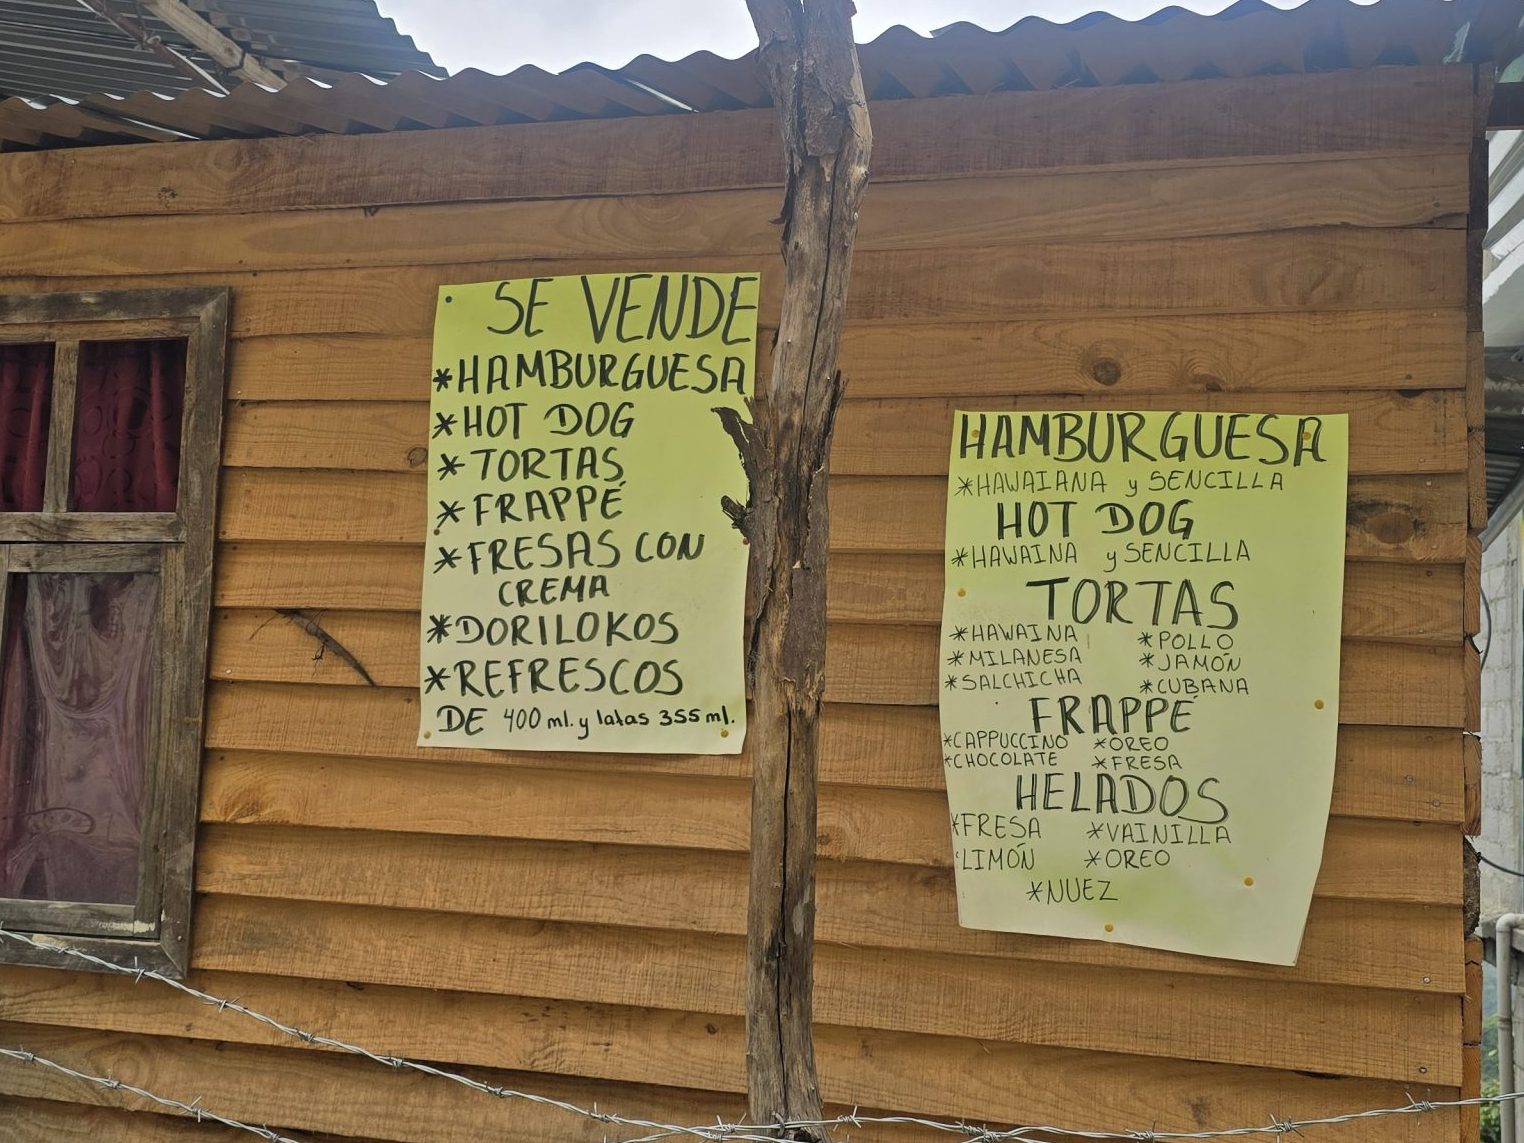 SE VENDE
*HAMBURGUESA
*HOT DOG
*TORTAS
*FRAPPÉ
*FRESAS CON
CREMA
*DORILOKOS
*REFRESCOS
DE 400 ml. y latas 355 ml.
HAMBURGUESA
*HAWAIANA y SENCILLA
HOT DOG
*HAWAINA y SENCILLA
TORTAS
*HAWAINA *POLLO
*MILANESA *JAMÓN
*SALCHICHA *CUBANA
FRAPPÉ
*CAPPUCCINO *OREO
*CHOCOLATE *FRESA
HELADOS
*FRESA *VAINILLA
*LIMÓN *OREO
*NUEZ